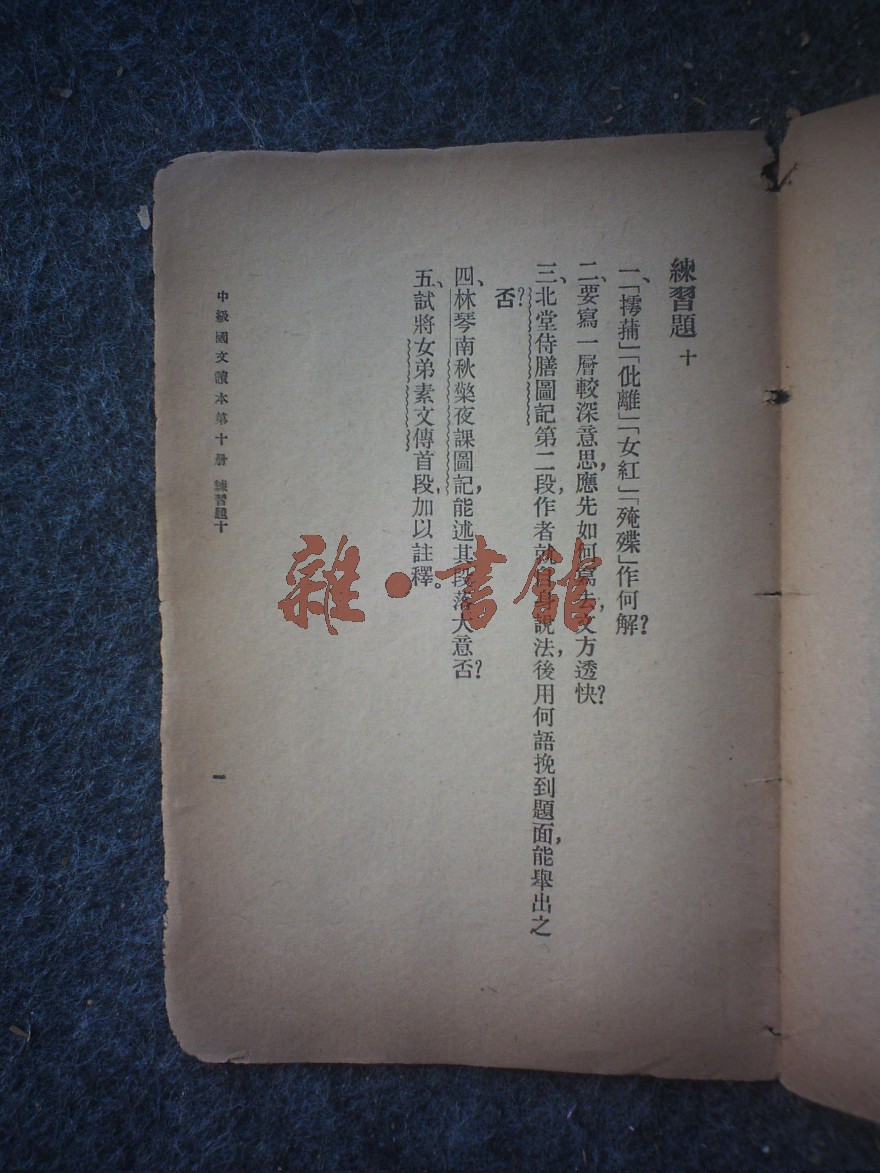 練習題 十
一、「摴蒱」「仳離」「女紅」「殗殜」作何解？
二、要寫一層較深意思，應先如何寫去，文方透快？
三、北堂侍膳圖記第二段，作者就自身說法，後用何語挽到題面，能舉出之
否？
四、林琴南秋檠夜課圖記，能述其段落大意否？
五、試將女弟素文傳首段，加以註釋。
中級國文讀本第十册 練習題十
一
雜·書館